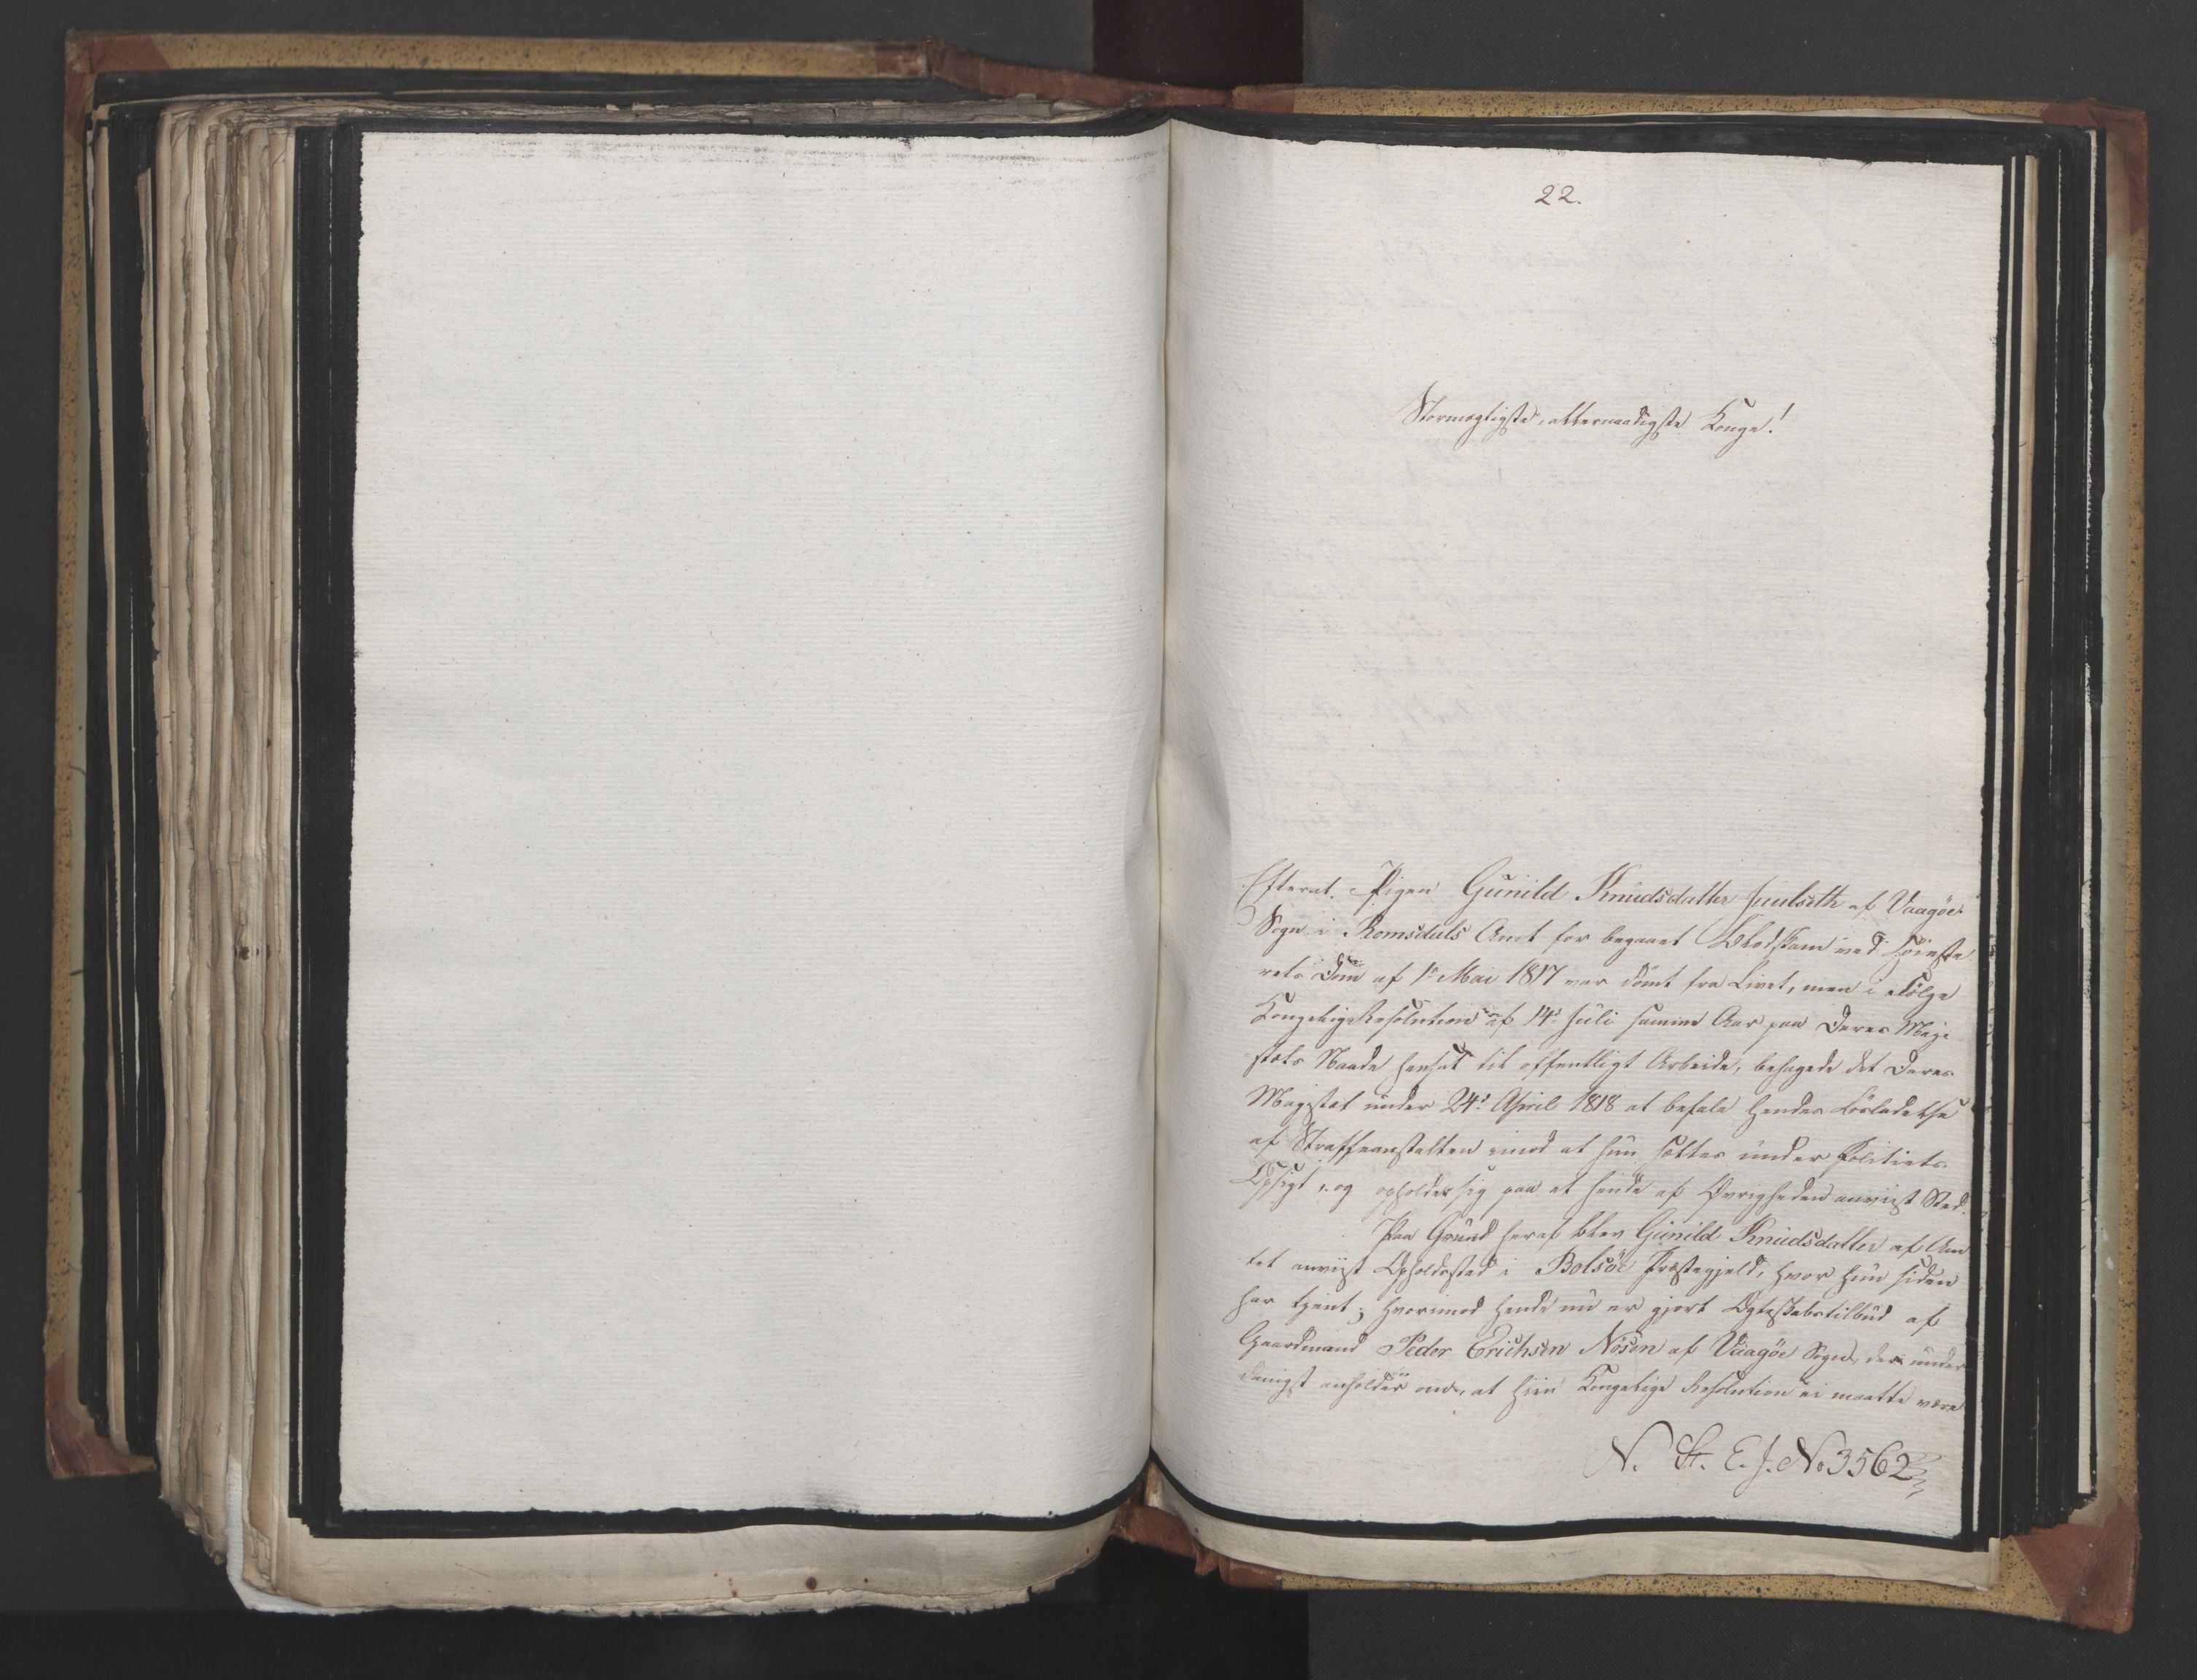 22.
Stormægtigste, allernaadigste Konge!
Efterat Pigen Gunild Knudsdatter Juulseth af Vaagöe
Sogn i Romsdals Amt for begaaet Blodskam ved Höieste
rets Dom af 1ste Mai 1817 var dömt fra Livet, men i Fölge
Kongelig Resolution af 14de Juli samme Aar paa Deres Maje
stæts Naade hensat til offentligt Arbeide, behagede det Deres
Majestæt under 24de April 1818 at befale hendes Lösladelse
af Straffeanstalten imod at hun sættes under Politiets
Opsigt, og opholder sig paa et hende af Øvrigheden anviist Sted.
Paa Grund heraf blev Gunild Knudsdatter af Am
tet anviist Opholdssted i Bolsöe Præstegjeld, hvor hun siden
har tjent; hvorimod hende nu er gjort Ægteskabstilbud af
Gaardmand Peder Erichsen Nösen af Vaagöe Sogn, der under
danigst anholder om, at hiin Kongelige Resolution ei maatte være
N. St. E. J. No 3562